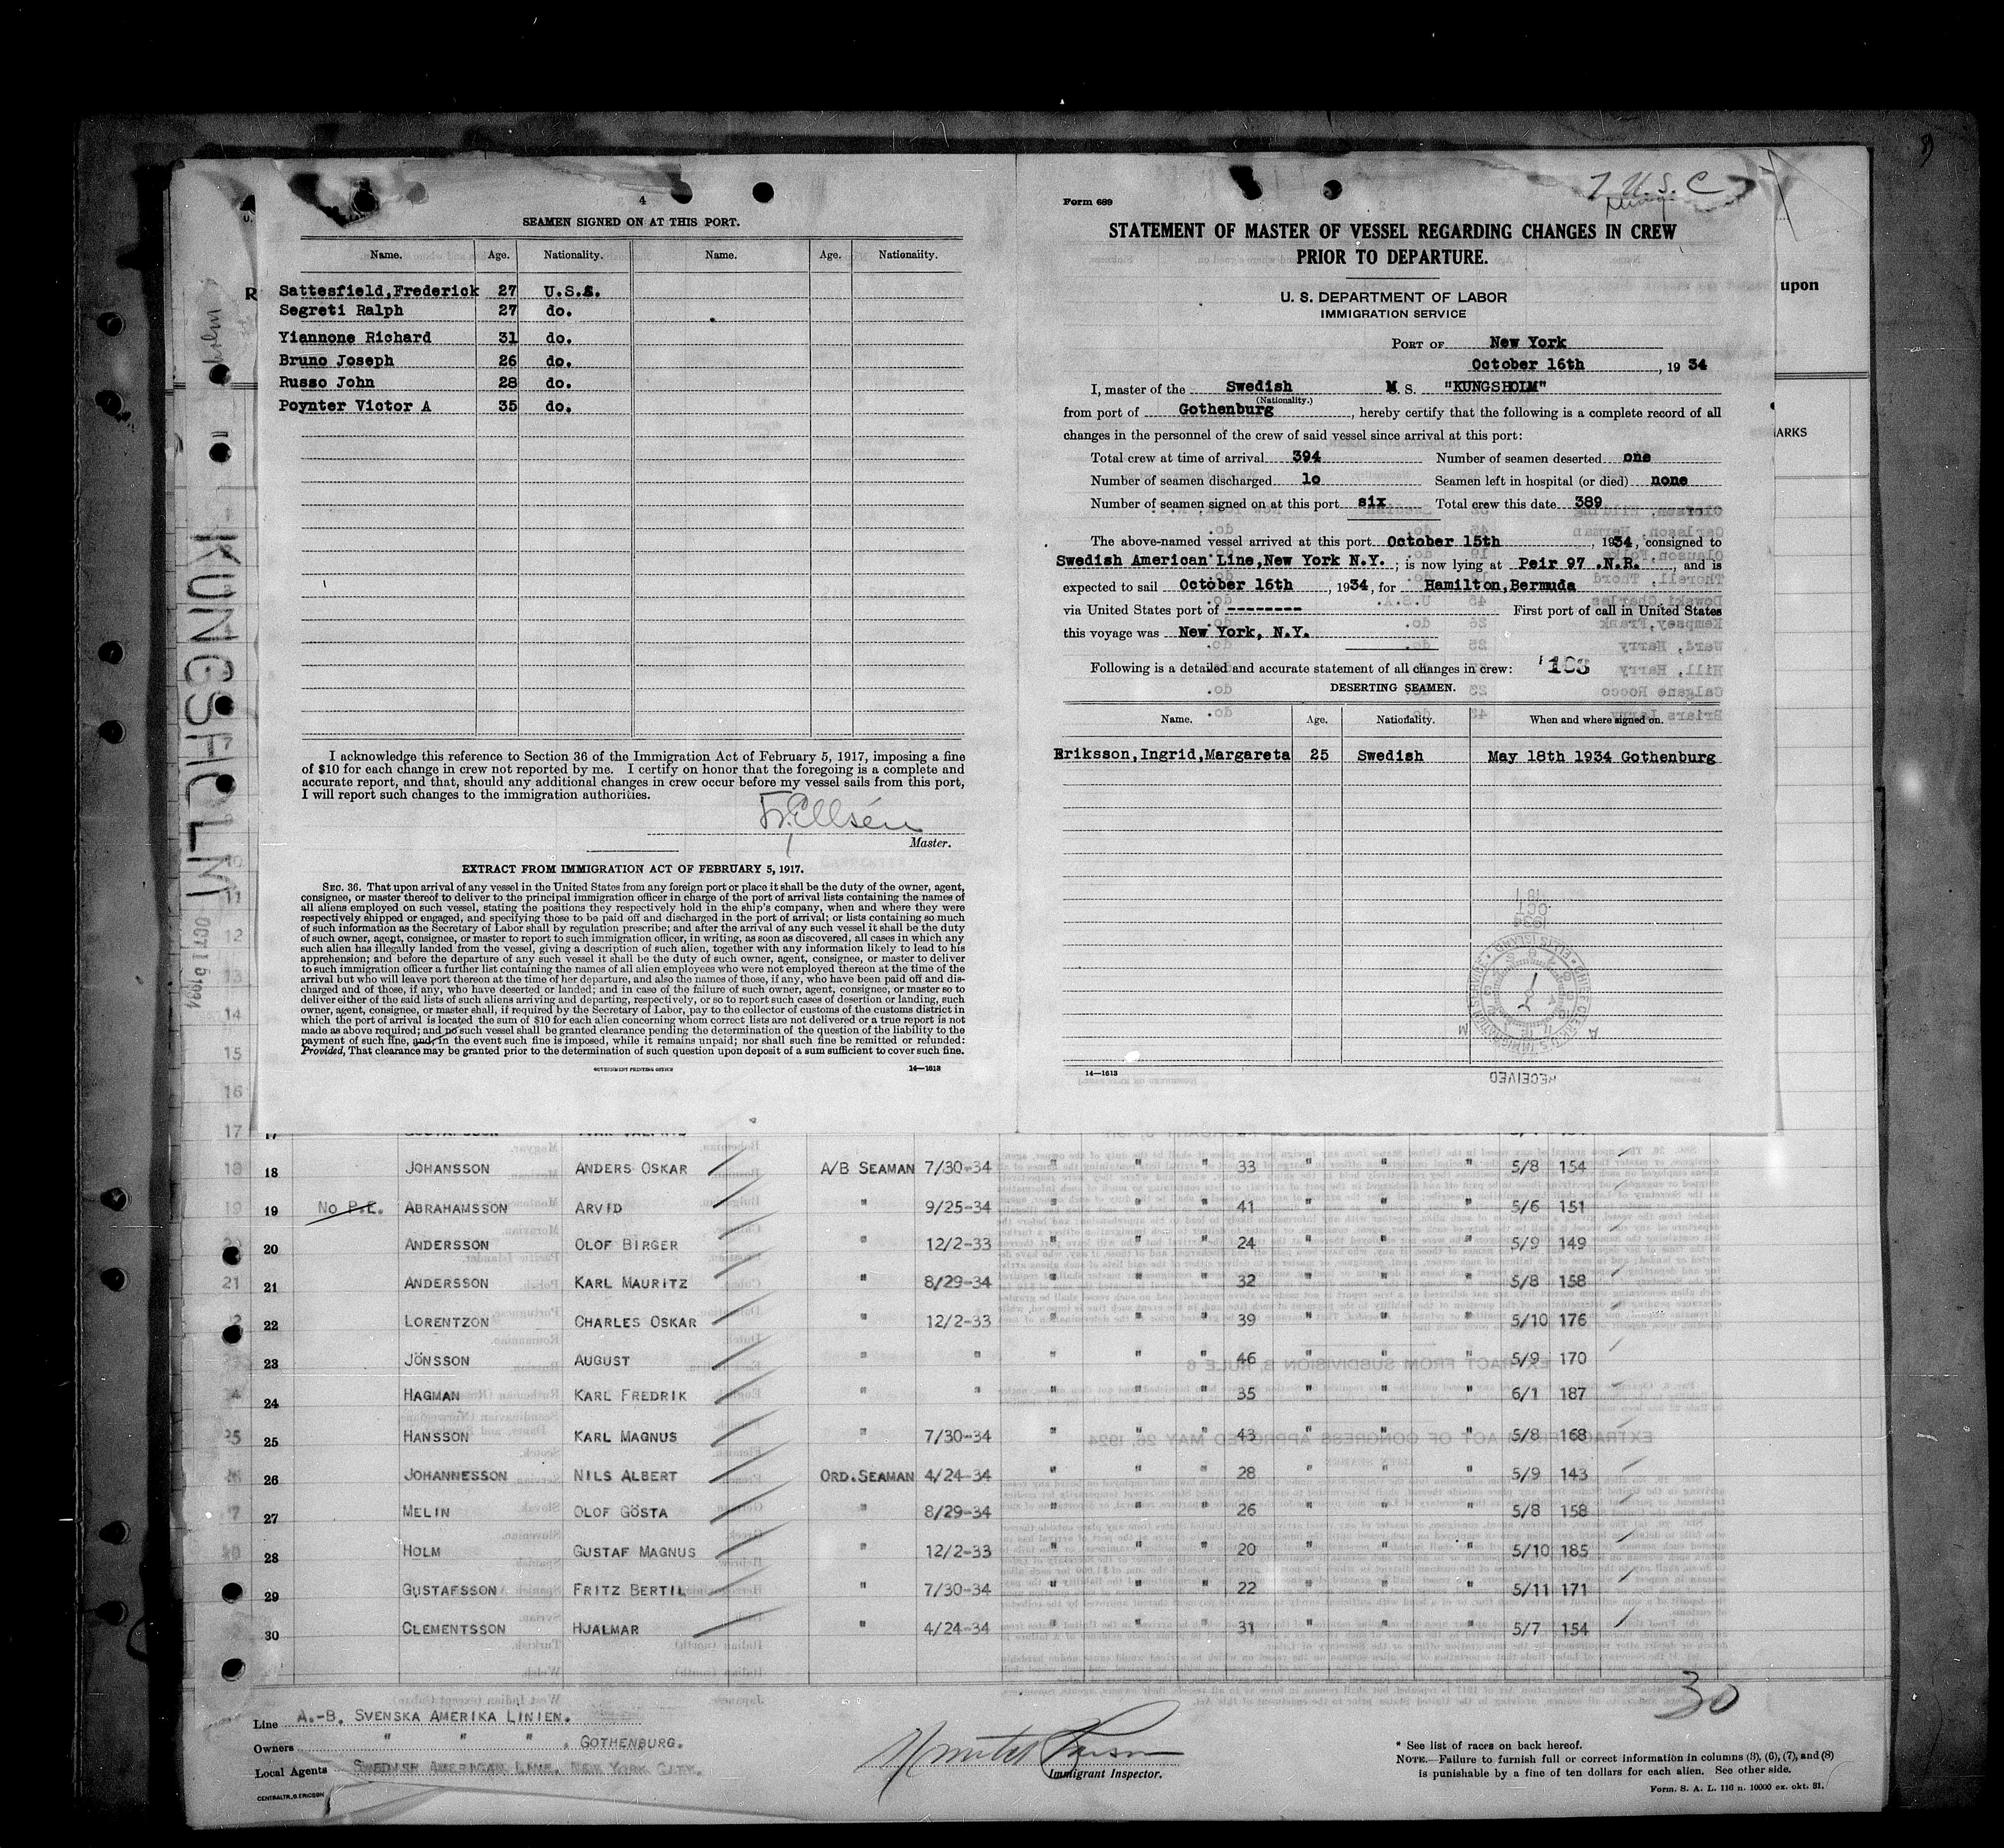 4
SEAMEN SIGNED ON AT THIS PORT.
Name. Age. Nationality. Name. Age. Nationality.
Sattesfield,Frederick 27 U.S.A.
Segreti Ralph 27 do.
Yiannone Richard 31 do.
Bruno Joseph 26 do.
Russo John 28 do.
Poynter Victor A 35 do.
I acknowledge this reference to Section 36 of the Immigration Act of February 5, 1917, imposing a fine
of $10 for each change in crew not reported by me. I certify on honor that the foregoing is a complete and
accurate report, and that, should any additional changes in crew occur before my vessel sails from this port,
I will report such changes to the immigration authorities.
Master.
EXTRACT FROM IMMIGRATION ACT OF FEBRUARY 5, 1917.
SEC. 36. That upon arrival of any vessel in the United States from any foreign port or place it shall be the duty of the owner, agent,
consignee, or master thereof to deliver to the principal immigration officer in charge of the port of arrival lists containing the names of
all aliens employed on such vessel, stating the positions they respectively hold in the ship's company, when and where they were
respectively shipped or engaged, and specifying those to be paid off and discharged in the port of arrival; or lists containing so much
of such information as the Secretary of Labor shall by regulation prescribe; and after the arrival of any such vessel it shall be the duty
of such owner, agent, consignee, or master to report to such immigration officer, in writing, as soon as discovered, all cases in which any
such alien has illegally landed from the vessel, giving a description of such alien, together with any information likely to lead to his
apprehension; and before the departure of any such vessel it shall be the duty of such owner, agent, consignee, or master to deliver
to such immigration officer a further list containing the names of all alien employees who were not employed thereon at the time of the
arrival but who will leave port thereon at the time of her departure, and also the names of those, if any, who have been paid off and dis-
charged and of those, if any, who have deserted or landed; and in case of the failure of such owner, agent, consignee, or master so to
deliver either of the said lists of such aliens arriving and departing, respectively, or so to report such cases of desertion or landing, such
owner, agent, consignee, or master shall, if required by the Secretary of Labor, pay to the collector of customs of the customs district in
which the port of arrival is located the sum of $10 for each alien concerning whom correct lists are not delivered or a true report is not
made as above required; and no such vessel shall be granted clearance pending the determination of the question of the liability to the
payment of such fine, and, in the event such fine is imposed, while it remains unpaid; nor shall such fine be remitted or refunded:
Provided, That clearance may be granted prior to the determination of such question upon deposit of a sum sufficient to cover such fine.
GOVERNMENT PRINTING OFFICE 14—1613
7 U. S. C
Form 689
STATEMENT OF MASTER OF VESSEL REGARDING CHANGES IN CREW
PRIOR TO DEPARTURE.
U. S. DEPARTMENT OF LABOR
IMMIGRATION SERVICE
PORT OF New York
October 16th , 19 34
I, master of the Swedish M. S. "KUNGSHOLM"
(Nationality.)
from port of Gothenburg , hereby certify that the following is a complete record of all
changes in the personnel of the crew of said vessel since arrival at this port:
Total crew at time of arrival 394 Number of seamen deserted one
Number of seamen discharged 1o Seamen left in hospital (or died) none
Number of seamen signed on at this port six Total crew this date 389
The above-named vessel arrived at this port October 15th , 1934, consigned to
Swedish American Line,New York N.Y. ; is now lying at Peir 97 .N.R. , and is
expected to sail October 16th , 1934, for Hamilton,Bermuda
via United States port of -------- First port of call in United States
this voyage was New York, N.Y.
Following is a detailed and accurate statement of all changes in crew:
DESERTING SEAMEN.
Name. Age. Nationality. When and where signed on.
Eriksson,Ingrid,Margareta 25 Swedish May 18th 1934 Gothenburg
RECEIVED
14—1613
upon
KUNGSHOLM
18 JOHANSSON ANDERS OSKAR A/B SEAMAN 7/30-34 " " " 33 " " " 5/8 154
19 No P.E. ABRAHAMSSON ARVID " 9/25-34 " " " 41 " " " 5/6 151
20 ANDERSSON OLOF BIRGER " 12/2-33 " " " 24 " " " 5/9 149
21 ANDERSSON KARL MAURITZ " 8/29-34 " " " 32 " " " 5/8 158
22 LORENTZON CHARLES OSKAR " 12/2-33 " " " 39 " " " 5/10 176
23 JÖNSSON AUGUST " " " " " 46 " " " 5/9 170
24 HAGMAN KARL FREDRIK " " " " " 35 " " " 6/1 187
25 HANSSON KARL MAGNUS " 7/30-34 " " " 43 " " " 5/8 168
26 JOHANNESSON NILS ALBERT ORD.SEAMAN 4/24-34 " " " 28 " " " 5/9 143
27 MELIN OLOF GÖSTA " 8/29-34 " " " 26 " " " 5/8 158
28 HOLM GUSTAF MAGNUS " 12/2-33 " " " 20 " " " 5/10 185
29 GUSTAFSSON FRITZ BERTIL " 7/30-34 " " " 22 " " " 5/11 171
30 CLEMENTSSON HJALMAR " 4/24-34 " " " 31 " " " 5/7 154
30
Line A.-B. SVENSKA AMERIKA LINIEN.
Owners " " " , GOTHENBURG.
Local Agents SWEDISH AMERICAN LINE, NEW YORK CITY.
CENTRALTR., G. ERICSON
Immigrant Inspector.
* See list of races on back hereof.
NOTE.—Failure to furnish full or correct information in columns (3), (6), (7), and (8)
is punishable by a fine of ten dollars for each alien. See other side.
Form. S. A. L. 116 n. 10000 ex. okt. 31.